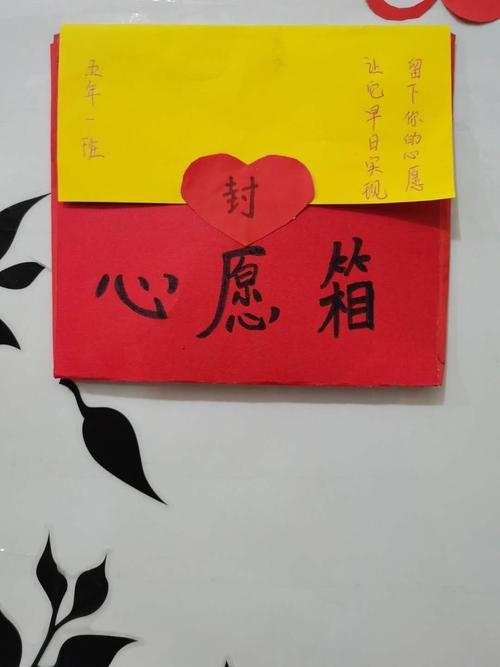 留下你的心愿
让它早日实现
五年一班
封
心愿箱